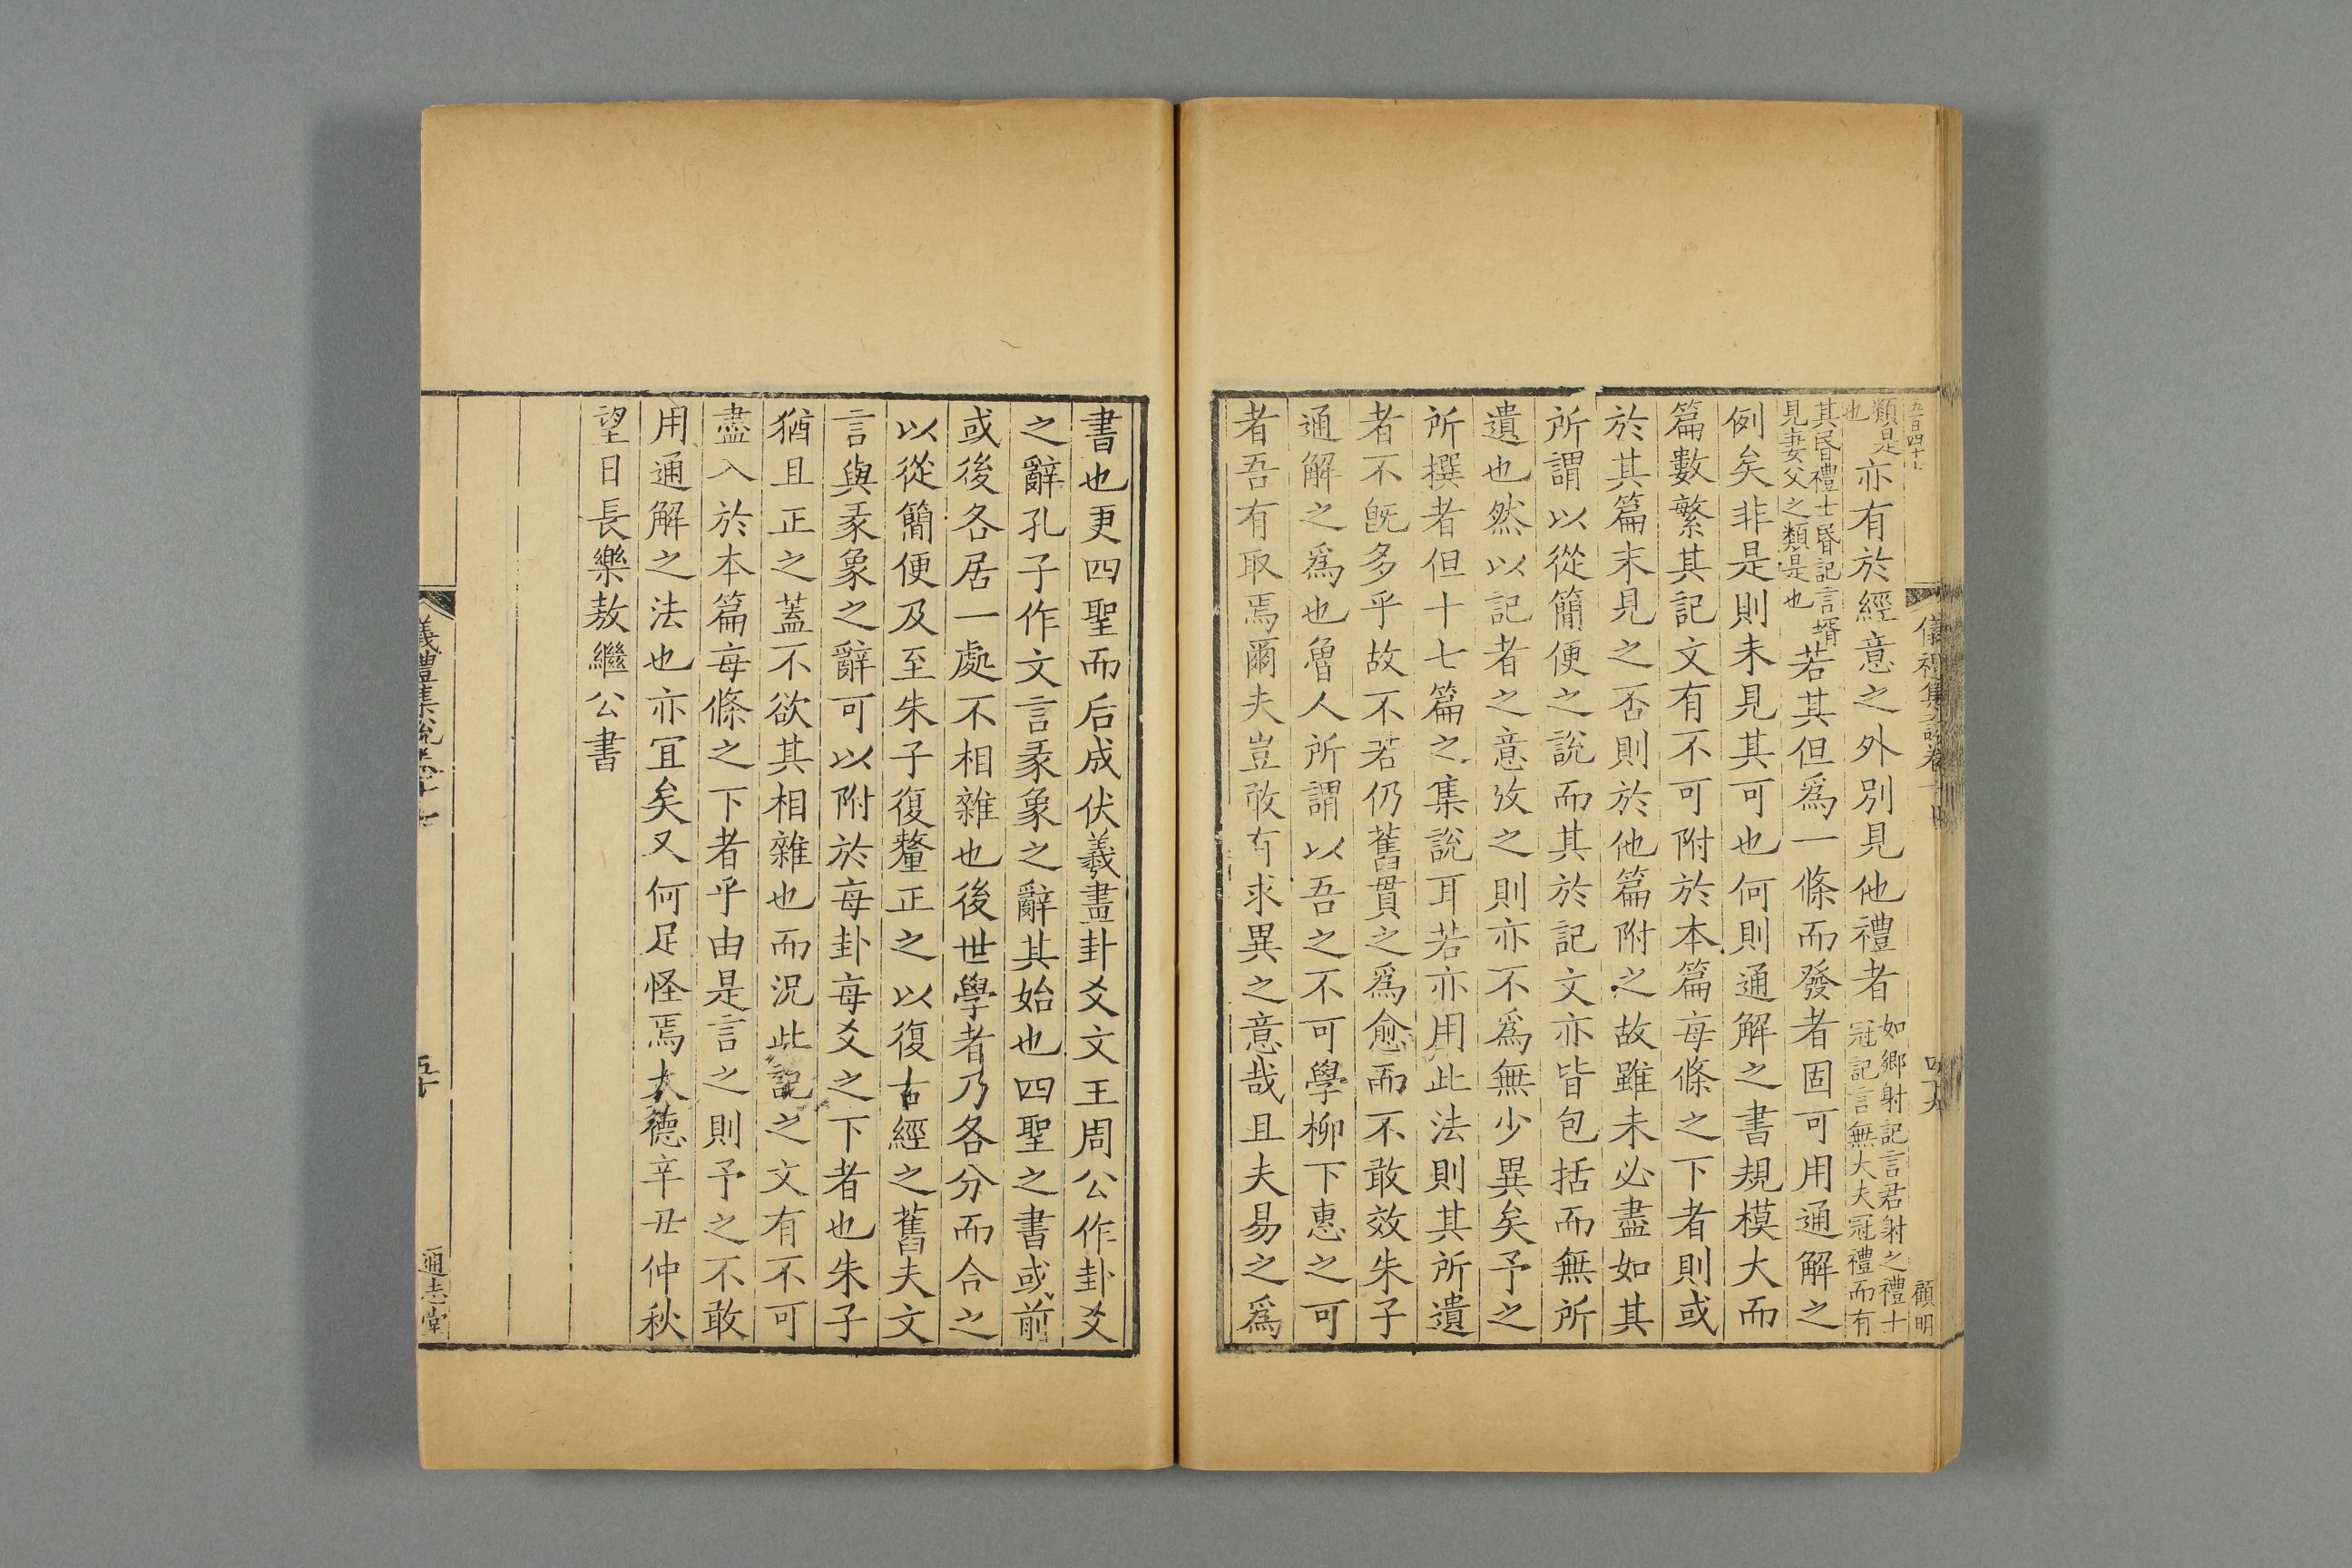 儀禮集說卷十
顧明
類是也亦有於經意之外別見他禮者如鄉射記言君射之禮士冠記言無大夫冠禮而有
其昬禮士昬記言壻見妻父之類是也若其但爲一條而發者固可用通解之
例矣非是則未見其可也何則通解之書規模大而
篇數繁其記文有不可附於本篇每條之下者則或
於其篇末見之否則於他篇附之故雖未必盡如其
所謂以從簡便之說而其於記文亦皆包括而無所
遺也然以記者之意攷之則亦不爲無少異矣予之
所撰者但十七篇之集說耳若亦用此法則其所遺
者不旣多乎故不若仍舊貫之爲愈而不敢效朱子
通解之爲也魯人所謂以吾之不可學柳下惠之可
者吾有取焉爾夫豈敢有求異之意哉且夫易之爲
書也更四聖而后成伏羲畫卦文王周公作卦爻
之辭孔子作文言彖象之辭其始也四聖之書或前
或後各居一處不相雜也後世學者乃各分而合之
以從簡便及至朱子復釐正之以復古經之舊夫文
言與彖象之辭可以附於每卦每爻之下者也朱子
猶且正之蓋不欲其相雜也而況此記之文有不可
盡入於本篇每條之下者乎由是言之則予之不敢
用通解之法也亦宜矣又何足怪焉大德辛丑仲秋
望日長樂敖繼公書
儀禮集說卷十七
五十
通志堂